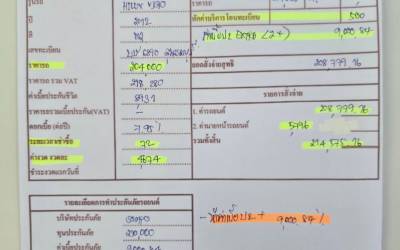 รุ่นรถ HILUX VIGO
ราคารถ
ปี 2012
หักค่าบริการโอนทะเบียน 500
สี
เลขทะเบียน
9,000.84
ราคารถ 204,000
ยอดสั่งจ่ายสุทธิ 208,779.16
ราคารถ รวม VAT 218,280
ค่าเบี้ยประกันชีวิต 8931
รายการสั่งจ่าย
ราคารถรวมเบี้ยประกัน(VAT) -
1. ค่ารถยนต์ 208,779.16
ดอกเบี้ย (ต่อปี) 7.95%
2. ค่านายหน้ารถยนต์ 5,796
ระยะเวลาเช่าซื้อ 72
รวมทั้งสิ้น 214,575.16
ค่างวด งวดละ 4674
ชำระงวดแรกวันที่
รายละเอียดการทำประกันภัยรถยนต์
บริษัทประกันภัย
ทุนประกันภัย
ค่าเบี้ยประกันภัย 9,000.84
9,000.84